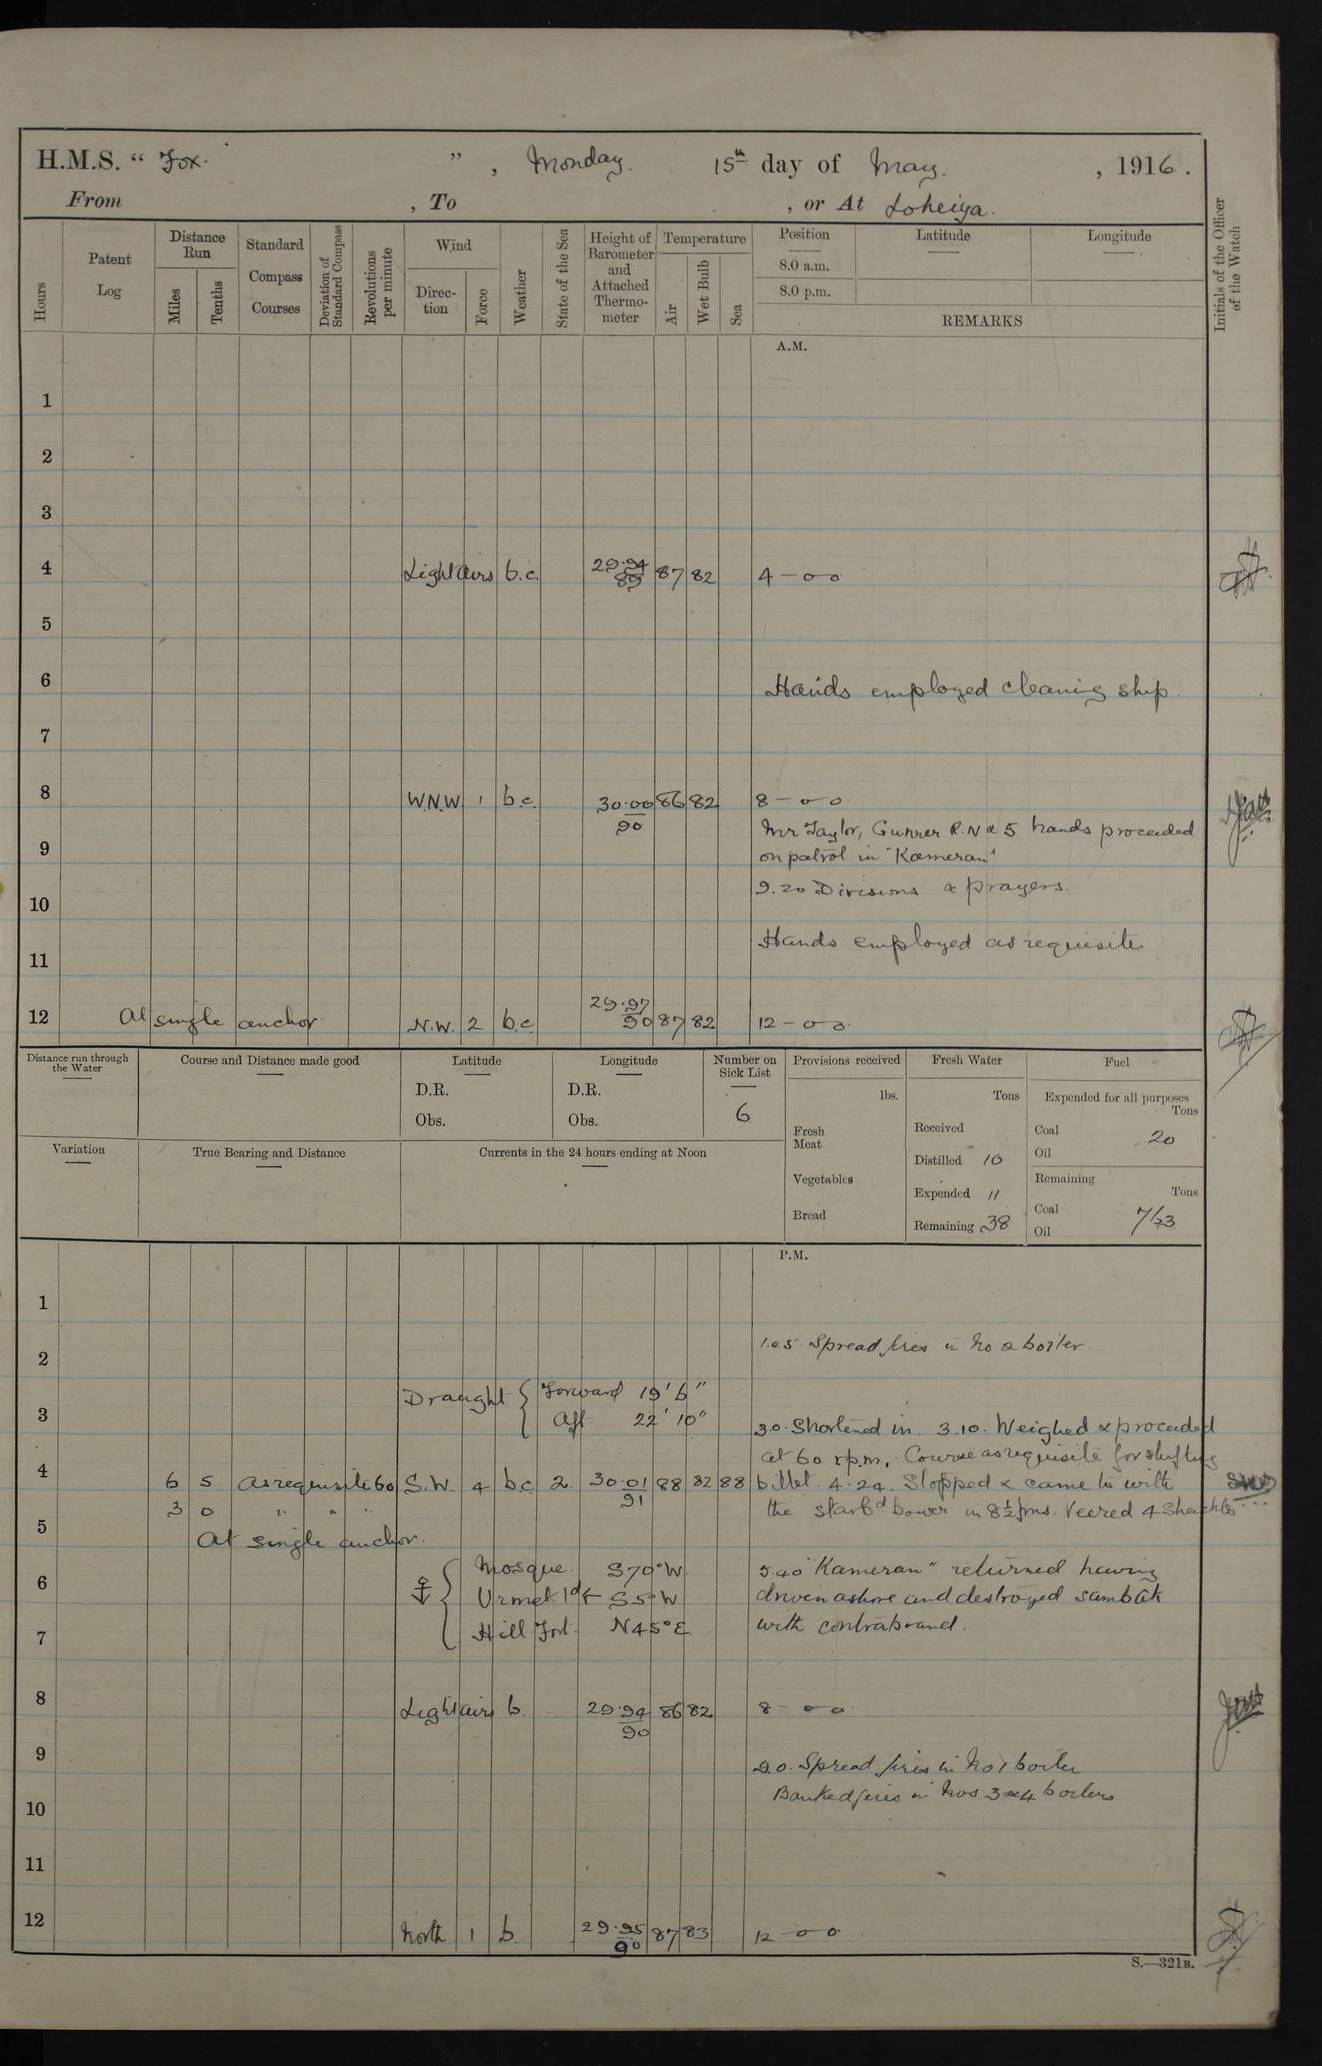 H.M.S. “ Fox. ” , Monday. 15th day of May. , 1916 .
From , To , or At Loheiya.
Hours
Patent Log
Distance Run
Miles
Tenths
Standard Compass Courses
Deviation of Standard Compass
Revolutions per minute
Wind
Direction
Force
Weather
State of the Sea
Height of Barometer and Attached Thermometer
Temperature
Air
Wet Bulb
Sea
Position
8.0 a.m.
8.0 p.m.
Latitude
Longitude
REMARKS
Initials of the Officer of the Watch
A.M.
1
2
3
4 Light airs b.c. 29.94 89 87 82 4 - o o
5
6 Hands employed cleaning ship.
7
8 W.N.W. 1 b.c. 30.00 90 86 82 8 - o o
Mr Taylor, Gunner R.N & 5 hands proceeded
9 on patrol in "Kameran"
9.20 Divisions & prayers.
10
Hands employed as requisite
11
12 At single anchor. N.W. 2 b.c. 29.97 90 87 82 12 - o o.
Distance run through the Water
Course and Distance made good
Latitude
D.R.
Obs.
Longitude
D.R.
Obs.
Number on Sick List
6
Variation
True Bearing and Distance
Currents in the 24 hours ending at Noon
Provisions received
lbs.
Fresh Meat
Vegetables
Bread
Fresh Water
Tons
Received
Distilled 10
Expended 11
Remaining 38
Fuel
Expended for all purposes
Tons
Coal 20
Oil
Remaining
Tons
Coal
Oil
P.M.
1
1.25 Spread fires in No 2 boiler.
2
Draught { Forward 19' 6"
Aft 22' 10"
3 3.0. Shortened in. 3.10. Weighed & proceeded
at 60 r.p.m. Course as requisite for shifting
4 6 5 As requisite 60 S.W. 4 b.c. 2. 30.01 91 88 82 88 billet. 4.24. Stopped & came to with
3 0 " " " the starbd bower in 8½ fms. Veered 4 Shackles
5 At single anchor.
Mosque S70°W
5.40 "Kameran" returned having
6 Urmek Id S5°W
driven ashore and destroyed sambuk
7 Hill Fort N45°E
with contraband.
8 Light airs b. 29.94 90 86 82 8 - o o.
9 9.0. Spread fires in No 1 boiler
Banked fires in Nos 3 & 4 boilers
10
11
12 North 1 b. 29.95 90 87 83 12 - o o
S.—321B.